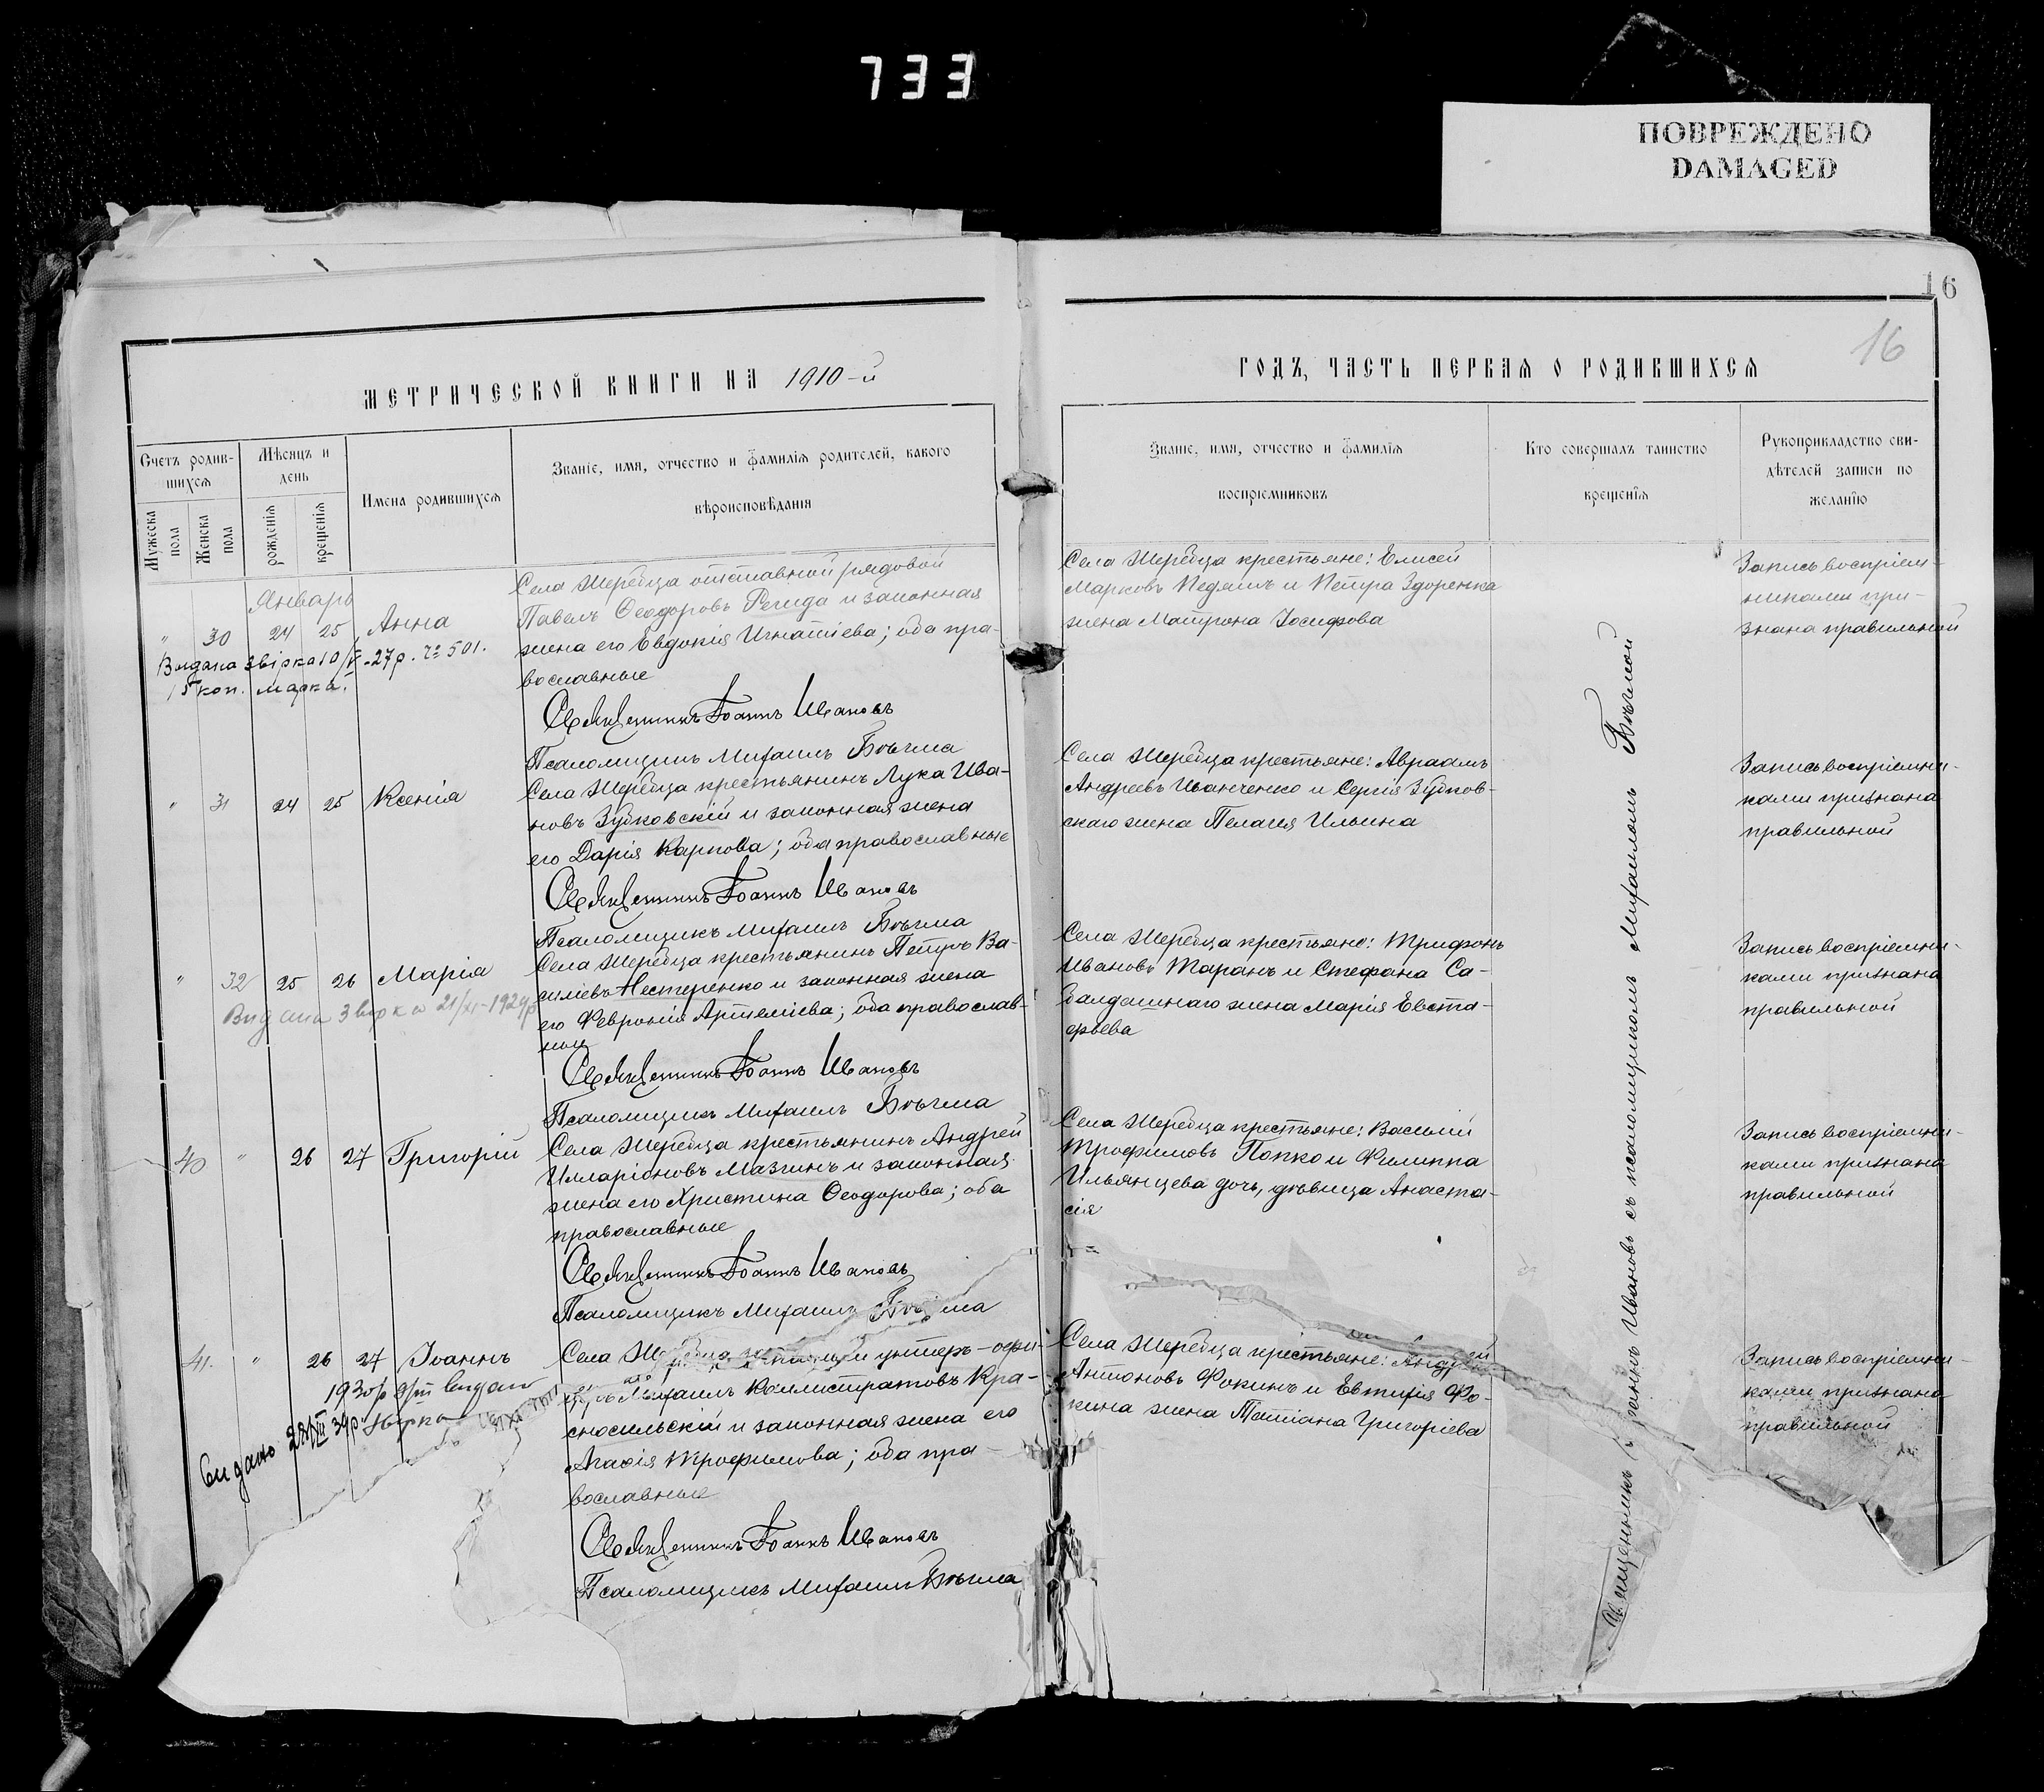 733
ПОВРЕЖДЕНО
DAMAGED
16
16
МЕТРИЧЕСКОЙ КНИГИ НА 1910-й
ГОДЪ, ЧАСТЬ ПЕРВАЯ О РОДИВШИХСЯ
Счетъ родив-
шихся
Мужеска
пола
Женска
пола
Мѣсяцъ и
день
рожденія
крещенія
Имена родившихся
Званіе, имя, отчество и фамилія родителей, какого
вѣроисповѣданія
Званіе, имя, отчество и фамилія
воспріемниковъ
Кто совершалъ таинство
крещенія
Рукоприкладство сви-
дѣтелей записи по
желанію
Январь
" 30 24 25 Анна
Выдана звірка 10/V-27р. № 501.
15 коп. марка.
Села Жеребца отставной рядовой
Павелъ Ѳеодоровъ и законная
жена его Евдокія Игнатіева; оба пра-
вославные
Священникъ Іоаннъ Ивановъ
Псаломщикъ Михаилъ Бѣгма
Села Жеребца крестьяне: Елисей
Марковъ и Петра Здоренка
жена Матрона Іосифова
Запись воспріем-
никами при-
знана правильной
" 31 24 25 Ксенія
Села Жеребца крестьянинъ Лука Ива-
новъ Зубковскій и законная жена
его Дарія Карпова; оба православные
Священникъ Іоаннъ Ивановъ
Псаломщикъ Михаилъ Бѣгма
Села Жеребца крестьяне: Авраамъ
Андреевъ Иванченко и Сергія Зубков-
скаго жена Пелагея Ильина
Запись воспріемни-
ками признана
правильной
" 32 25 26 Марія
Видана звірка 21/XI-1929р
Села Жеребца крестьянинъ Петръ Ва-
силіевъ Нестеренко и законная жена
его Февронія Артеміева; оба православ-
ные
Священникъ Іоаннъ Ивановъ
Псаломщикъ Михаилъ Бѣгма
Села Жеребца крестьяне: Трифонъ
Ивановъ Таранъ и Стефана Са-
балдашнаго жена Марія Евста-
фьева
Запись воспріемни-
ками признана
правильной
40 " 26 27 Григорій
Села Жеребца крестьянинъ Андрей
Илларіоновъ Мазгинъ и законная
жена его Христина Ѳеодорова; оба
православные
Священникъ Іоаннъ Ивановъ
Псаломщикъ Михаилъ Бѣгма
Села Жеребца крестьяне: Василій
Трофимовъ Попко и Филиппа
Ильянцева дочь, дѣвица Анаста-
сія
Запись воспріемни-
ками признана
правильной
41. " 26 27 Іоаннъ
1930р видано
видано звірка
Села Жеребца унтеръ-офи-
церъ Михаилъ Каллистратовъ Кра-
сносельскій и законная жена его
Агафія Трофимова; оба пра-
вославные
Священникъ Іоаннъ Ивановъ
Псаломщикъ Михаилъ Бѣгма
Села Жеребца крестьяне: Андрей
Антоновъ Фокинъ и Евтихія Фо-
кина жена Татіана Григоріева
Запись воспріемни-
ками признана
правильной
Священникъ Іоаннъ Ивановъ съ псаломщикомъ Михаиломъ Бѣгмой